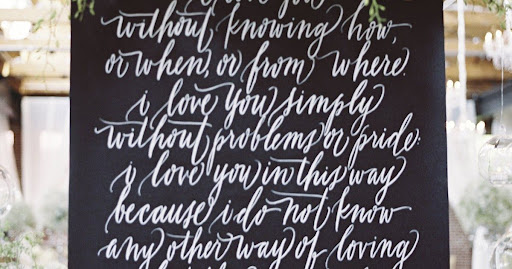 i love you
without knowing how,
or when, or from where.
i love you simply
without problems or pride:
i love you in this way
because i do not know
any other way of loving